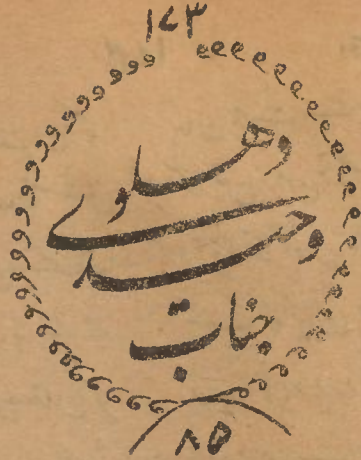 ۱۷۳
جناب
وحید
دهلوے
۸۵